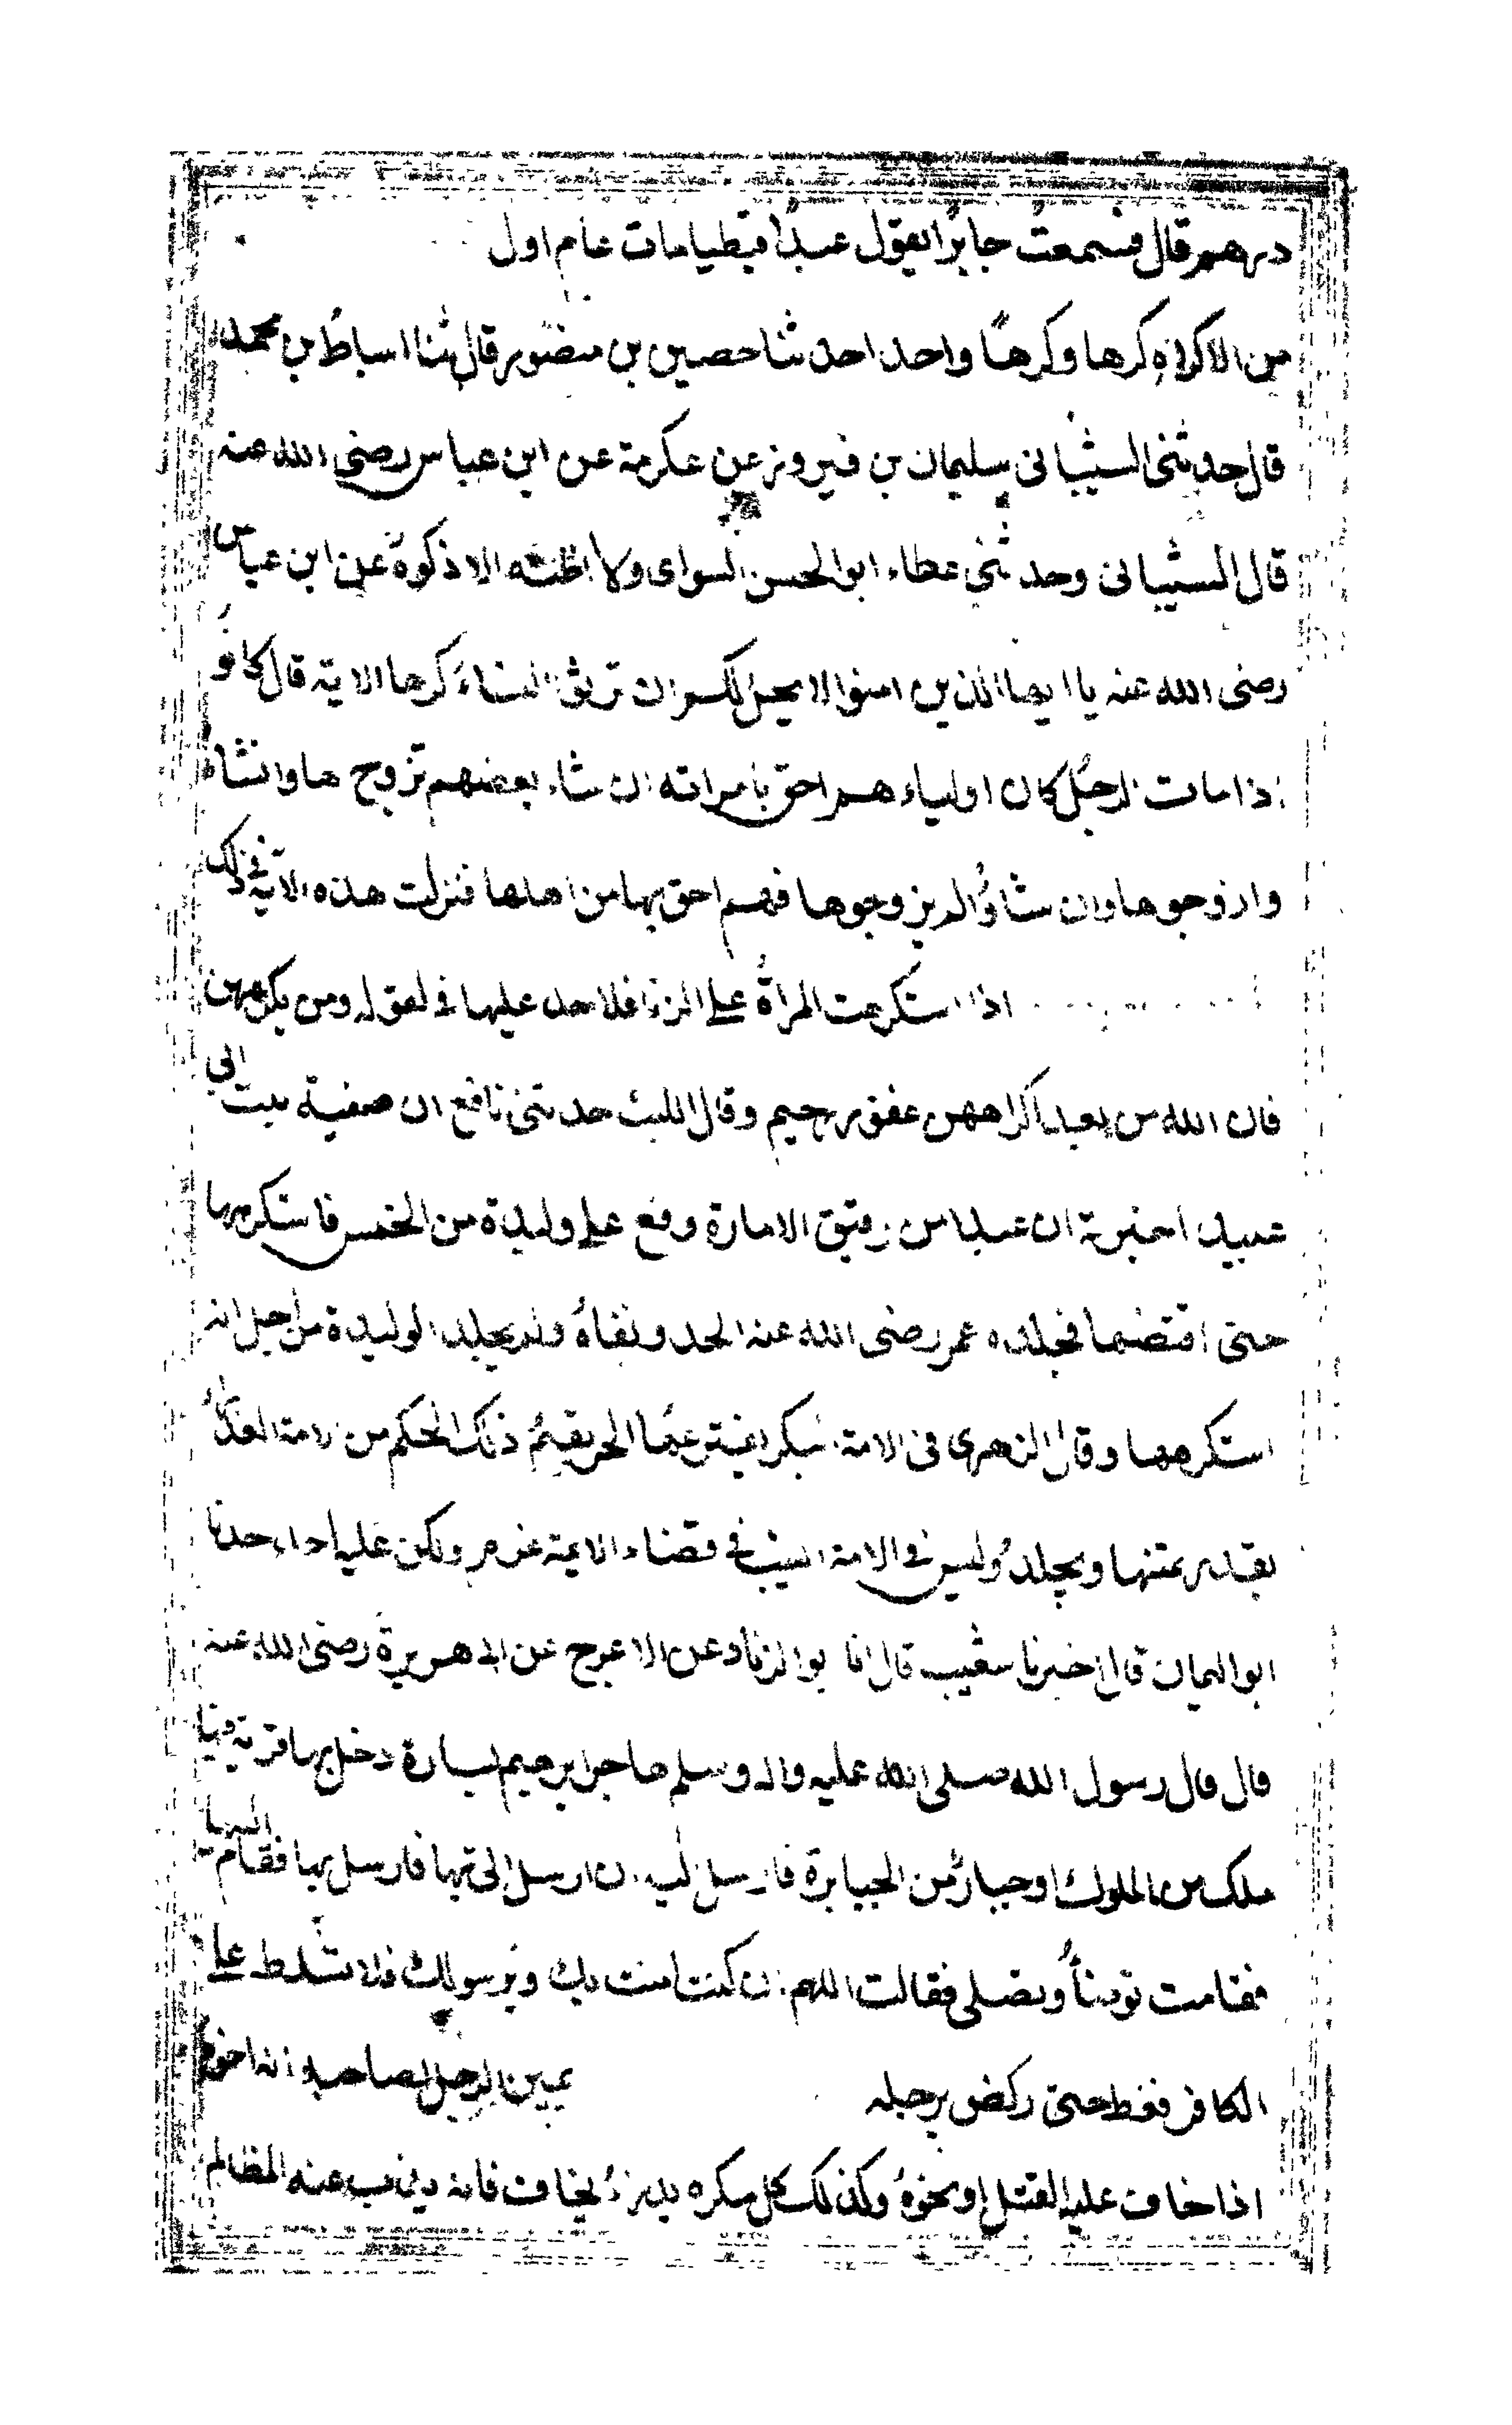 درهم قال فسمعت جابرًا يقول عبدًا قبطيا مات عام اول
من الاكراه كرها وكرهًا واحد احد ثنا حصين بن منصور قال ثنا اسباط بن محمد
قال حدثنى الشيبانى سليمان بن فيروز عن عكرمة عن ابن عباس رضى الله عنه
قال الشيبانى وحدثنى عطاء ابوالحسن السواى ولا اظنه الا ذكره عن ابن عباس
رضى الله عنه يا ايها الذين امنوا لا يحل لكم ان ترثوا النساء كرها الاية قال كانوا
اذا مات الرجل كان اولياءهم احق بامراته ان شاء بعضهم تزوج ها وان شاؤا
وازوجوها وان شاؤا لم يزوجوها فهم احق بها من اهلها فنزلت هذه الاية فى ذلك
اذا استكرهت المراة على الزنا فلا حد عليها فى لقوله ومن يكرههن
فان الله من بعد اكراههن غفور رحيم وقال الليث حدثنى نافع ان صفية بنت ابى
عبيد اخبرته ان عبدا من رقيق الامارة وقع على وليدة من الخمس فاستكرهها
حتى اقتضها فجلده عمر رضى الله عنه الحد ونفاه ولم يجلد الوليدة من اجل انه
استكرهها وقال الزهرى فى الامة البكر يفترعها الحر يقيم ذلك الحكم من الامة العذراء
بقدر ثمنها ويجلد وليس فى الامة الثيب فى قضاء الايمة غرم ولكن عليه احد حدثنا
ابواليمان قال اخبرنا شعيب قال انا ابوالزناد عن الاعرج عن ابى هريرة رضى الله عنه
قال قال رسول الله صلى الله عليه واله وسلم هاجر ابرهيم بسارة دخل بها قرية فيها
ملك من الملوك او جبار من الجبابرة فارسل اليه ان ارسل الى بها فارسل بها فقام اليها
فقامت توضأ وتصلى فقالت اللهم ان كنت امنت بك وبرسولك فلا تسلط على
الكافر فغط حتى ركض برجله يمين الرجل لصاحبه انه اخوه
اذا خاف عليه القتل او نحوه وكذلك كل مكره يخاف فانه يذب عنه المظالم